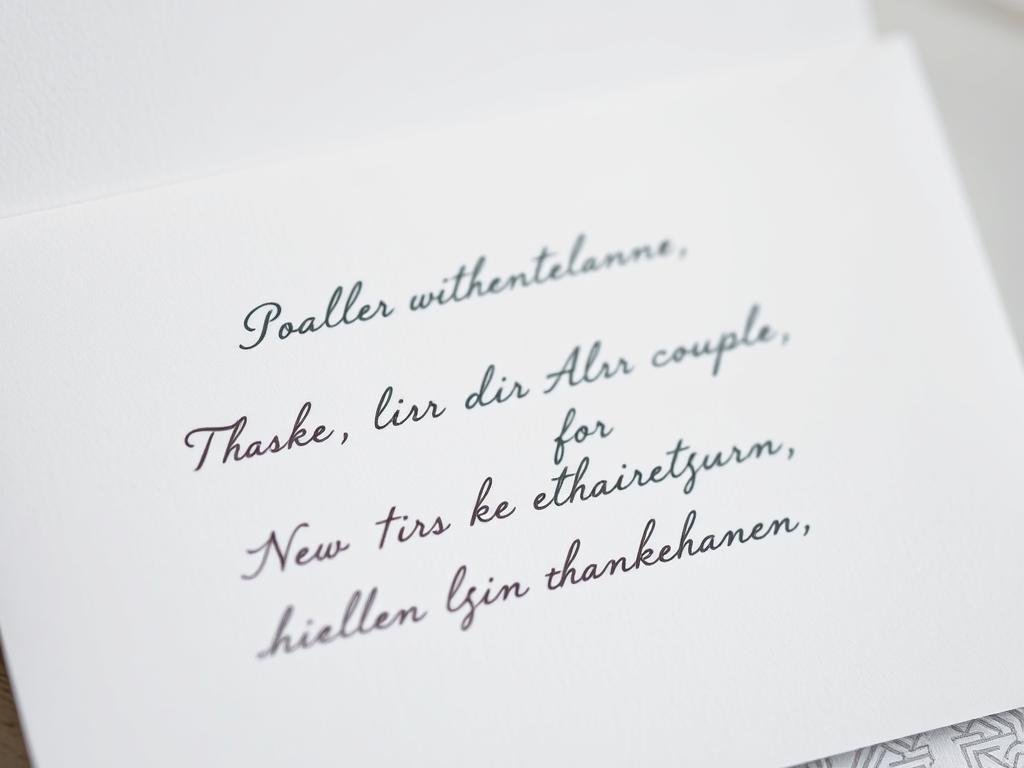 Poaller withentelanne,
Thaske, lirr dir Alrr couple,
for
New tirs ke ethairetgurn,
hiellen lgin thankehanen,